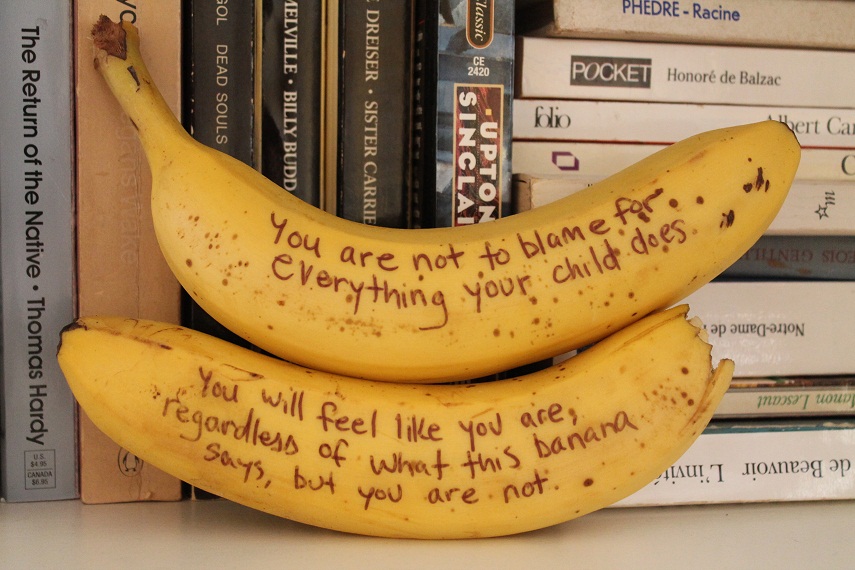 The Return of the Native • Thomas Hardy
U.S.
$4.95
CANADA
$6.95
DEAD SOULS
MELVILLE • BILLY BUDD
DREISER • SISTER CARRIE
Classic
CE
2420
UPTON
SINCLAI
PHÈDRE - Racine
POCKET Honoré de Balzac
folio Albert Ca
Notre-Dame de
Manon Lescaut
de Beauvoir L'invité
You are not to blame for
everything your child does.
You will feel like you are,
regardless of what this banana
says, but you are not.